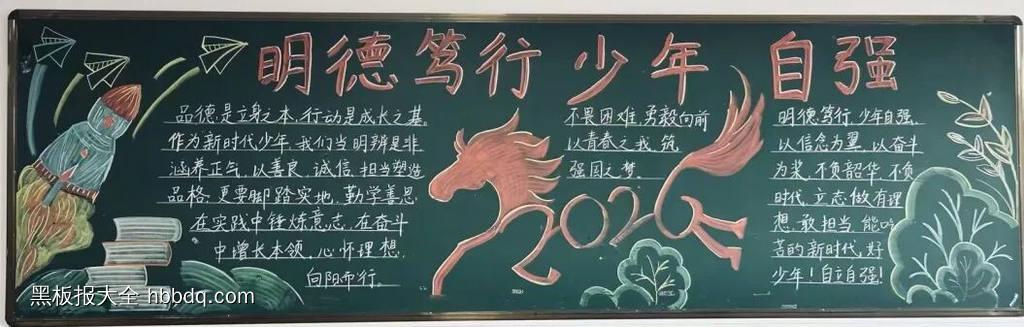 明德笃行 少年 自强
品德是立身之本,行动是成长之基。
作为新时代少年,我们当明辨是非
涵养正气,以善良、诚信、担当塑造
品格,更要脚踏实地,勤学善思
在实践中锤炼意志,在奋斗
中增长本领,心怀理想,
向阳而行。
不畏困难,勇毅向前
以青春之我,筑
强国之梦
2026
明德笃行,少年自强,
以信念为翼,以奋斗
为桨,不负韶华,不负
时代,立志做有理
想,敢担当,能吃
苦的新时代好
少年!自立自强!
黑板报大全 hbbdq.com